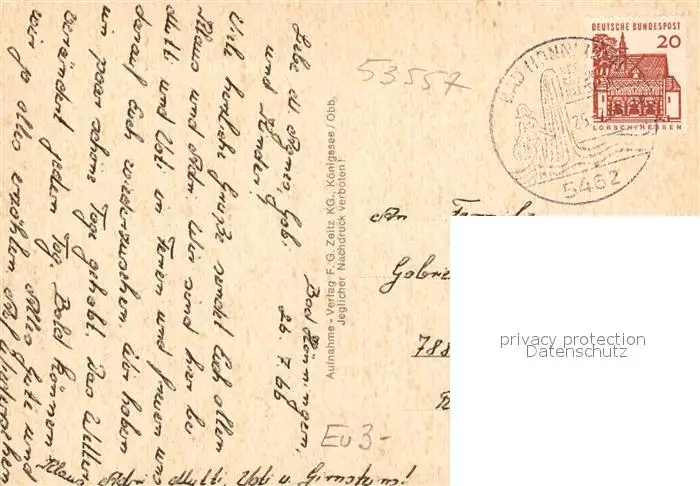 DEUTSCHE BUNDESPOST
20
LORSCH/HESSEN
BAD HÖNN
25.
5462
53557
Bad Hönningen,
26.7.66
und Kinder!
Viele herzliche Grüße sendet Euch allen
Klaus und Wir sind hier bei
Mutti und Vati in Ferien und freuen uns
darauf Euch wiederzusehen. Wir haben
ein paar schöne Tage gehabt. Das Wetter
verändert jeden Tag. Bald können
wir ja alles erzählen.
Alles Gute und
Klaus
Aufnahme - Verlag F. G. Zeitz KG., Königssee / Obb.
Jeglicher Nachdruck verboten!
An Familie
788
Eu 3-
privacy protection
Datenschutz